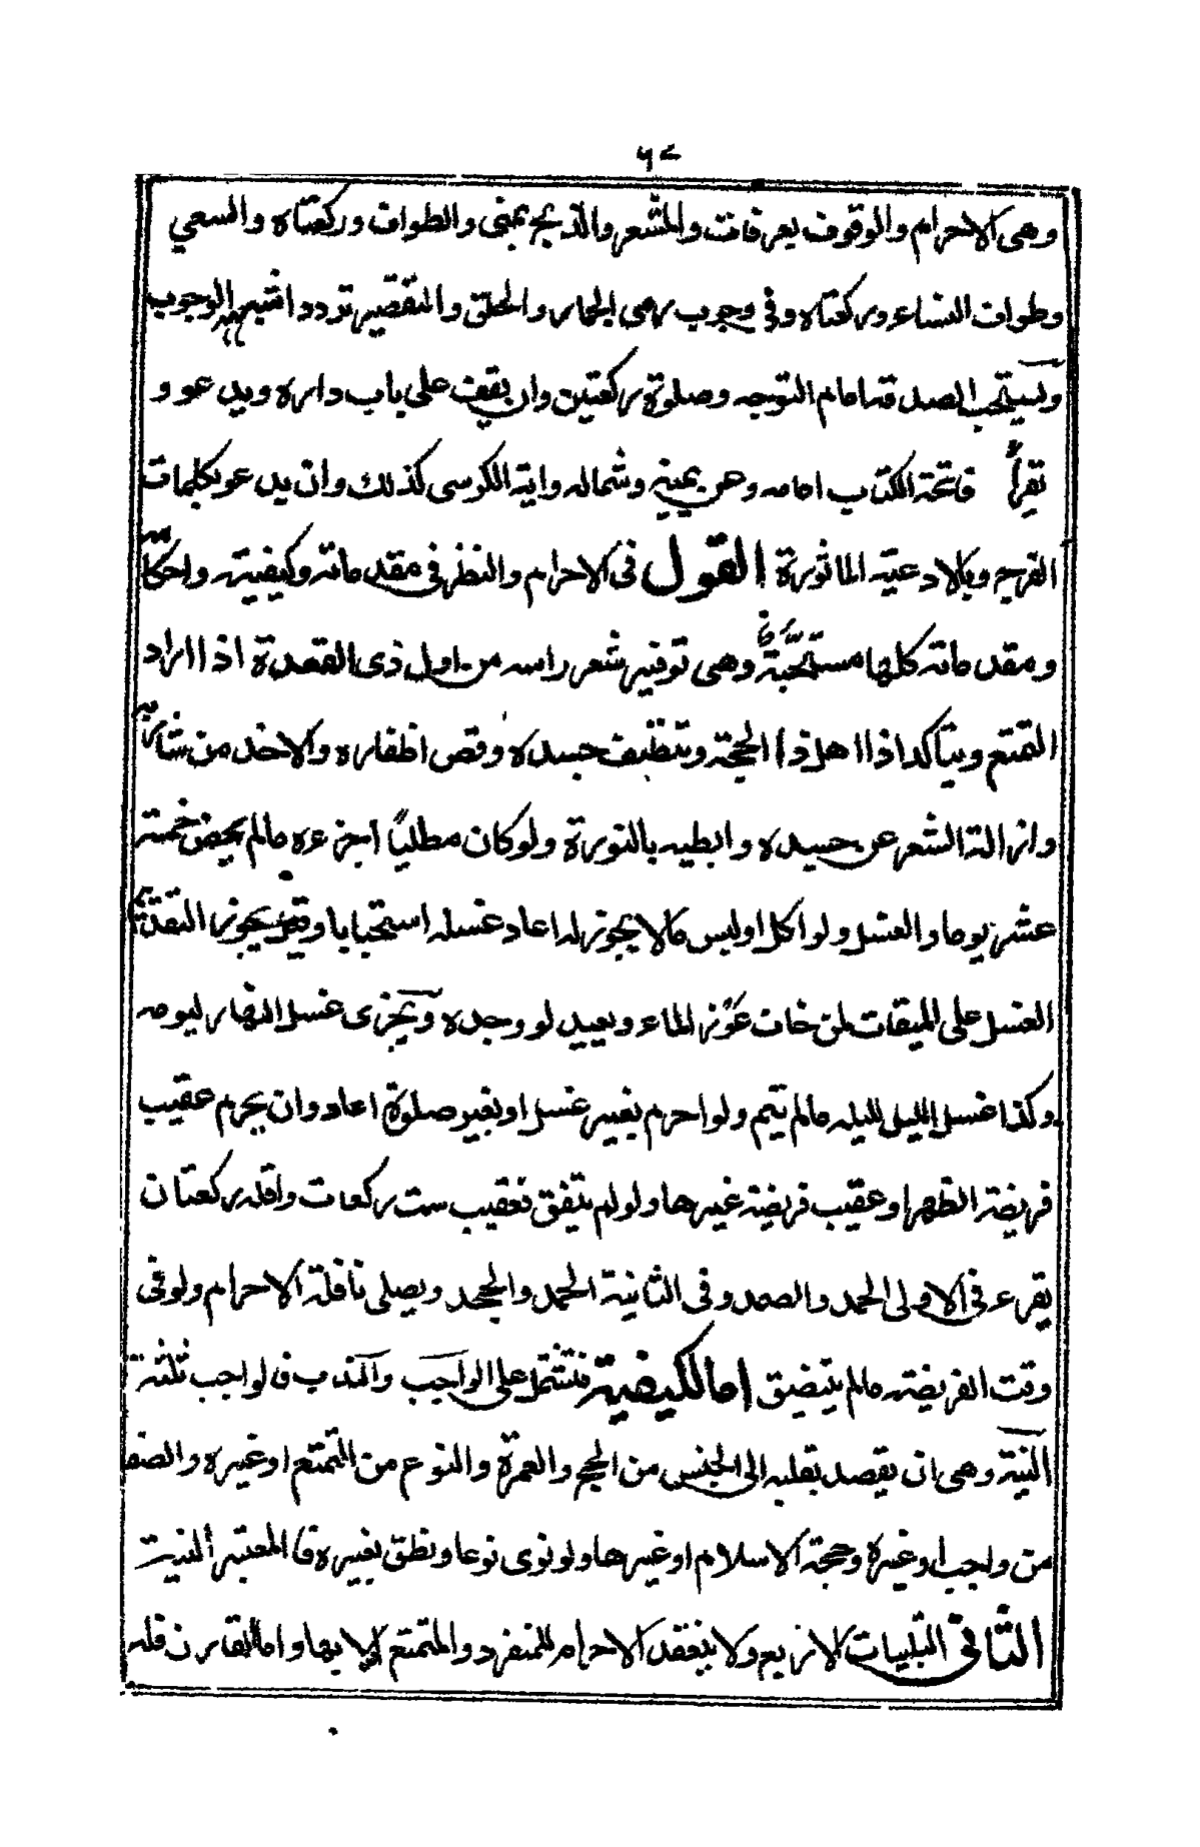 ٦٨
وهى الاحرام والوقوف بعرفات والمشعر والذبح بمنى والطواف وركعتاه والسعي
وطواف النساء وركعتاه وفى وجوب رمى الجمار والحلق والتقصير تردد اشبهه الوجوب
ويستحب الصدقة امام التوجه وصلوة ركعتين وان يقف على باب داره ويدعو و
يقرأ فاتحة الكتاب امامه وعن يمينه وشماله واية الكرسى كذلك وان يدعو بكلمات
الفرج وبالادعية الماثورة القول فى الاحرام والنظر فى مقدماته وكيفيته واحكامه
ومقدماته كلها مستحبة وهى توفير شعر راسه من اول ذى القعدة اذا اراد
التمتع ويتاكد اذا اهل ذا الحجة وتنظيف جسده وقص اظفاره والاخذ من شاربه
وازالة الشعر عن جسده وابطيه بالنورة ولو كان مطليا اجزءه مالم يمض خمسة
عشر يوما والغسل ولو اكل اوليس مالا يجوز له اعاد غسله استحبابا وقيل يجوز تقديم
الغسل على الميقات لمن خاف عوز الماء ويعيد لو وجده ويجزى غسل النهار ليومه
وكذا غسل الليل لليله مالم ينم ولو احرم بغير غسل او بغير صلوة اعاد وان يحرم عقيب
فريضة الظهر او عقيب فريضة غيرها ولو لم يتفق فعقيب ست ركعات واقله ركعتان
يقرء فى الاولى الحمد والصمد وفى الثانية الحمد والجحد ويصلى نافلة الاحرام ولو فى
وقت الفريضة مالم يتضيق اما الكيفية فتشتمل على الواجب والمندب فالواجب ثلثة
النية وهى ان يقصد بقلبه الى الجنس من الحج والعمرة والنوع من التمتع او غيره والصفة
من واجب او غيره وحجة الاسلام او غيرها ولو نوى نوعا ونطق بغيره فالمعتبر النية
الثانى التلبيات الاربع ولا ينعقد الاحرام للمفرد والمتمتع الا بها واما القارن فله